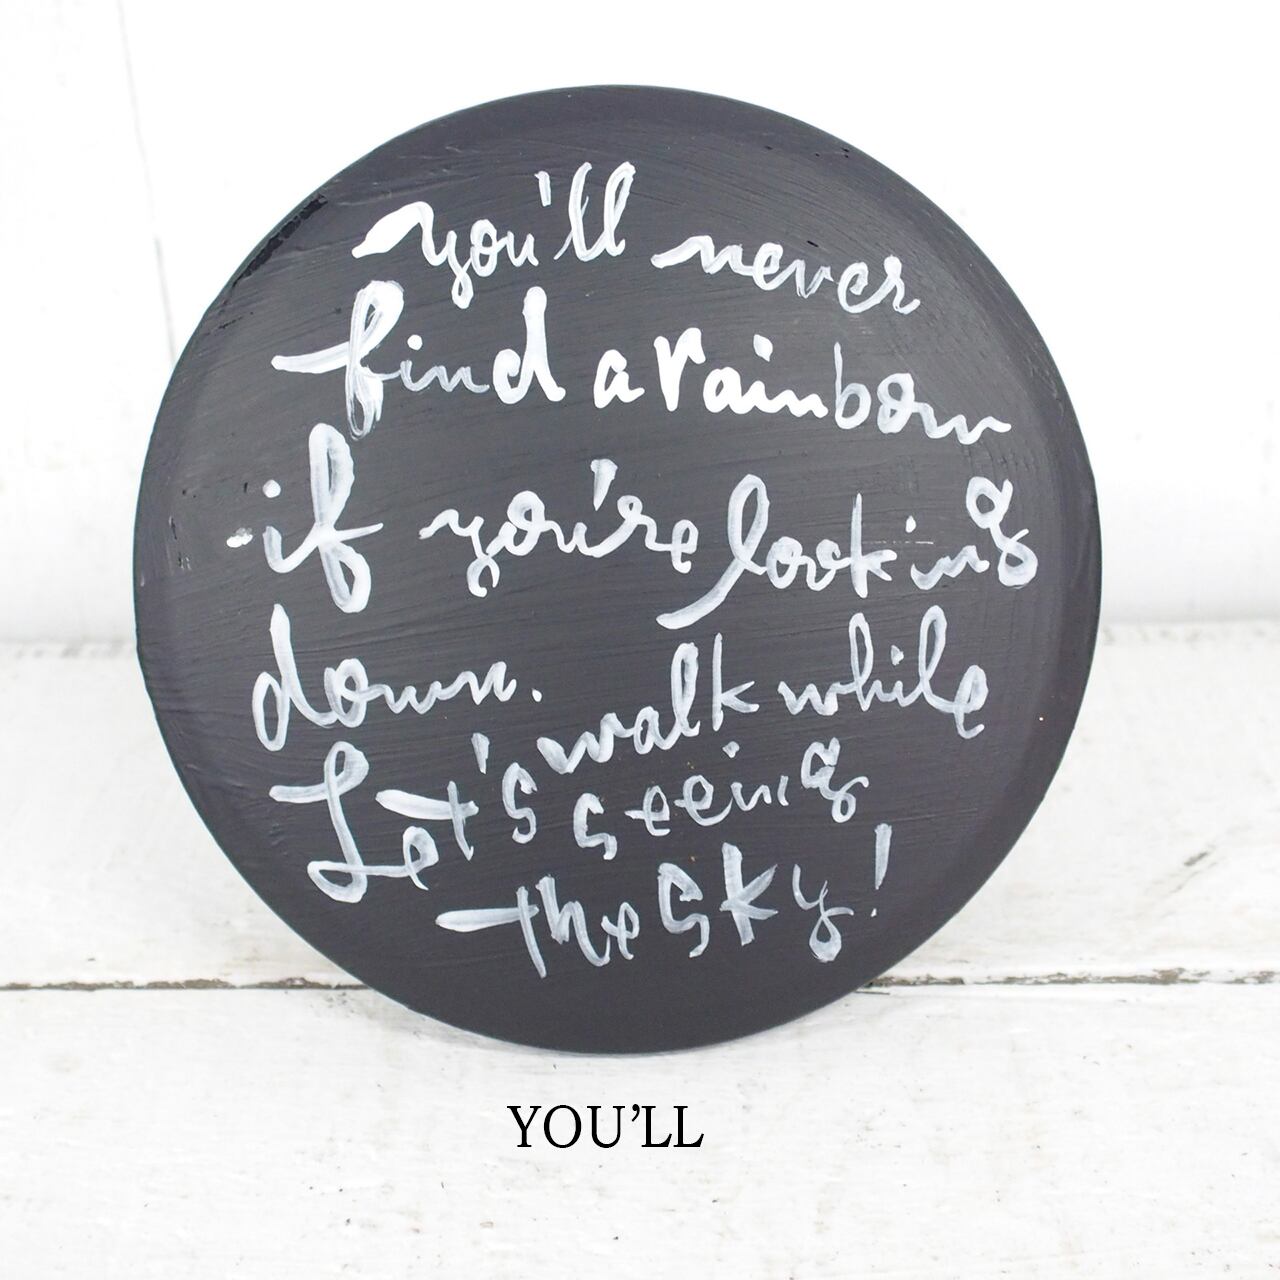 you'll never
find a rainbow
if you're looking
down.
Let's walk while
seeing
the sky!
YOU'LL